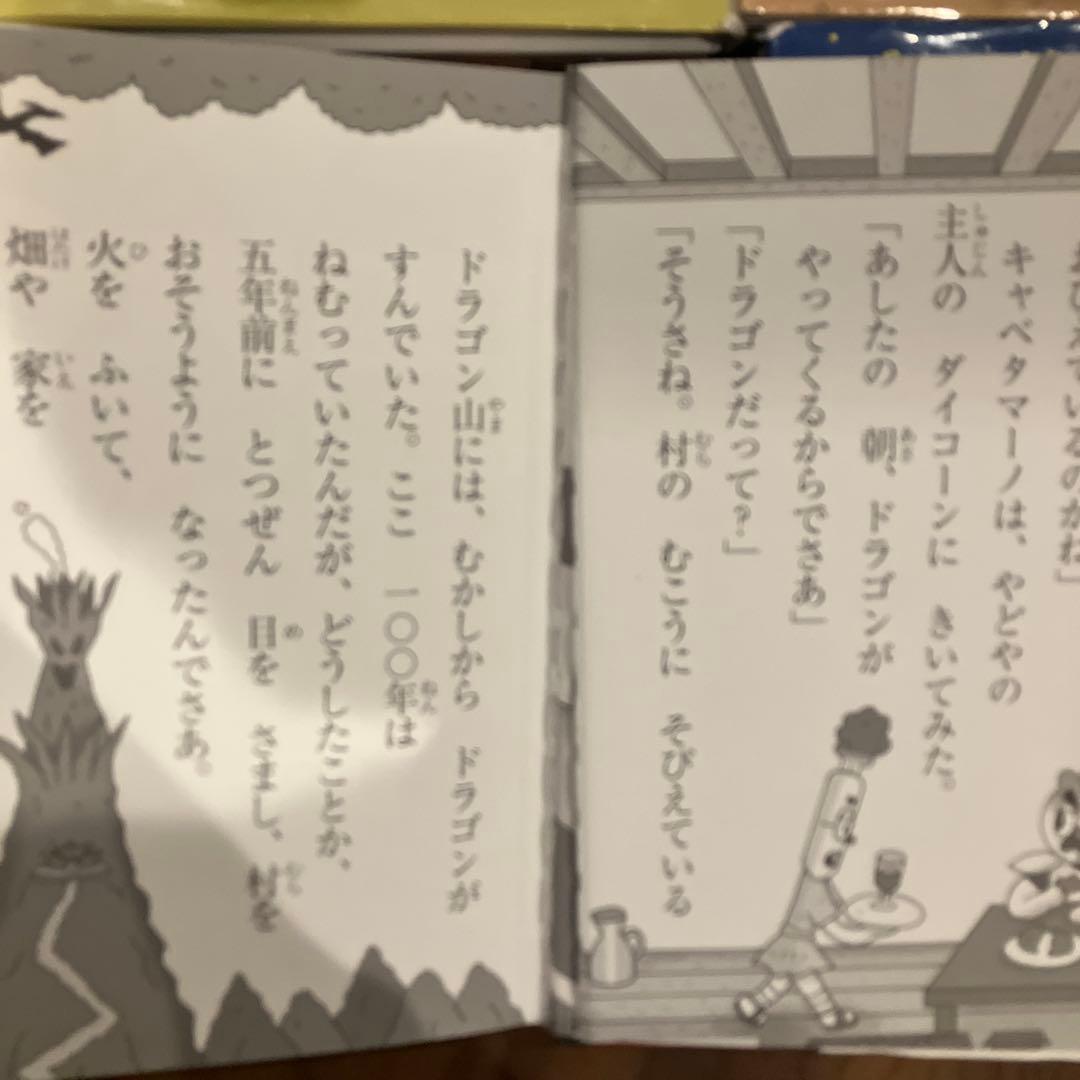 ているのかね」
キャベタマーノは、やどやの
主人の　ダイコーンに　きいてみた。
「あしたの　朝、ドラゴンが
やってくるからでさあ」
「ドラゴンだって？」
「そうさね。村の　むこうに　そびえている
ドラゴン山には、むかしから　ドラゴンが
すんでいた。ここ　一〇〇年は
ねむっていたんだが、どうしたことか、
五年前に　とつぜん　目を　さまし、村を
おそうように　なったんでさあ。
火を　ふいて、
畑や　家を